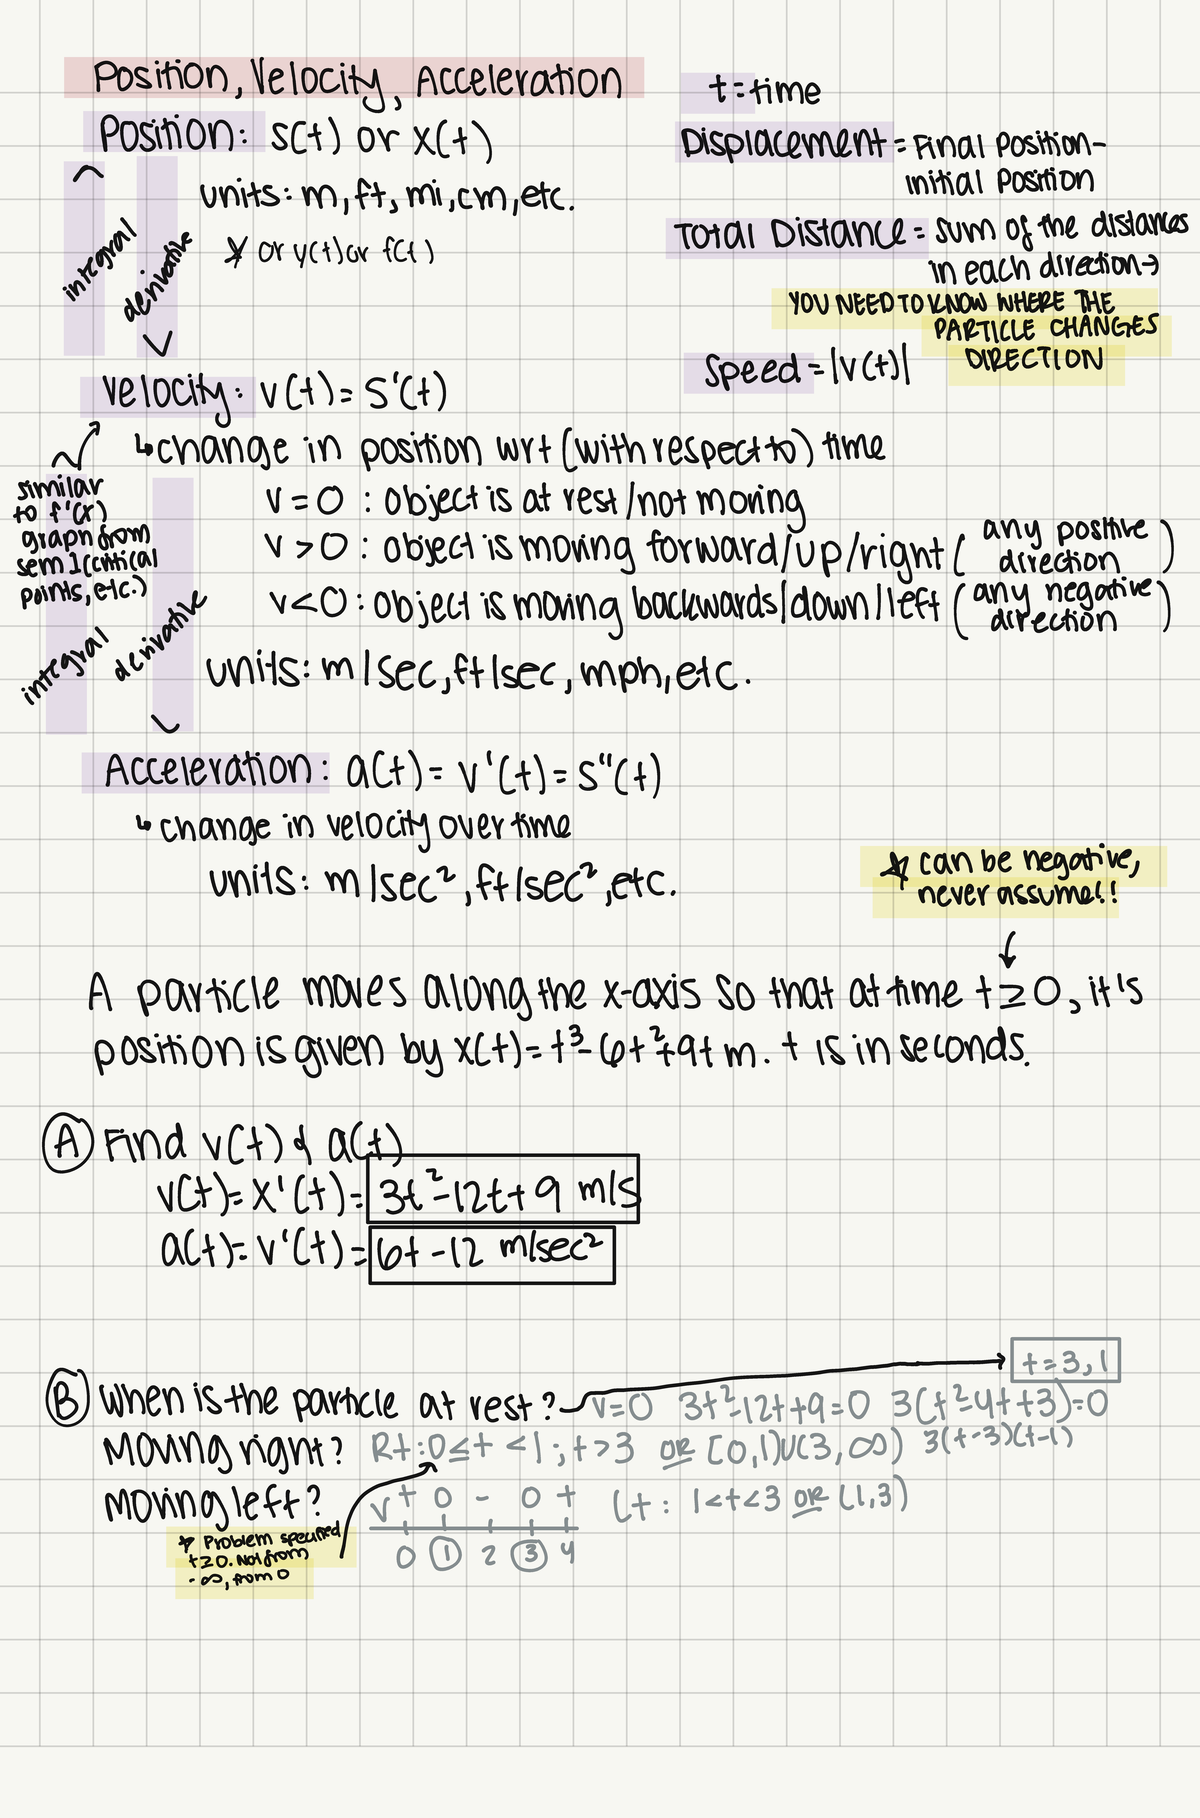 Position, Velocity, Acceleration
Position: s(t) or x(t)
units: m, ft, mi, cm, etc.
* or y(t) or f(t)
integral
derivative
t = time
Displacement = Final Position -
Initial Position
Total Distance = sum of the distances
in each direction →
YOU NEED TO KNOW WHERE THE
PARTICLE CHANGES
DIRECTION
Speed = |v(t)|
Velocity: v(t) = s'(t)
↳ change in position wrt (with respect to) time
v = 0 : object is at rest/not moving
v > 0 : object is moving forward/up/right (any positive direction)
v < 0 : object is moving backwards/down/left (any negative direction)
units: m/sec, ft/sec, mph, etc.
similar
to f'(x)
graph from
sem 1 (critical
points, etc.)
integral
derivative
Acceleration: a(t) = v'(t) = s''(t)
↳ change in velocity over time
units: m/sec², ft/sec², etc.
* can be negative,
never assume!!
A particle moves along the x-axis so that at time t ≥ 0, it's
position is given by x(t) = t³ - 6t² + 9t m. t is in seconds.
A Find v(t) & a(t)
v(t) = x'(t) = 3t² - 12t + 9 m/s
a(t) = v'(t) = 6t - 12 m/sec²
t = 3, 1
B When is the particle at rest? v = 0 3t² - 12t + 9 = 0 3(t² - 4t + 3) = 0
3(t-3)(t-1)
Moving right? Rt: 0 ≤ t < 1 ; t > 3 OR [0,1) U (3, ∞)
Moving left? (t: 1 < t < 3 OR (1,3)
v + 0 - 0 +
0 1 2 3 4
* Problem specified
t ≥ 0. Not from
-∞, from 0